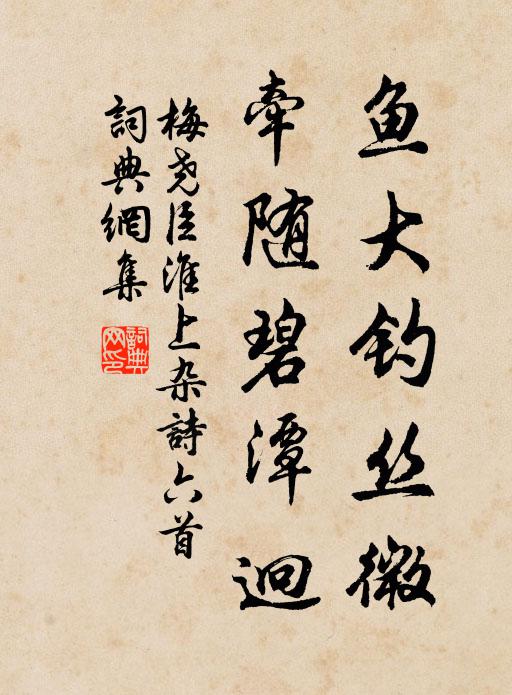 鱼大钓丝微
牵随碧潭迴
梅尧臣淮上杂詩六首
詞典網集
詞典网印